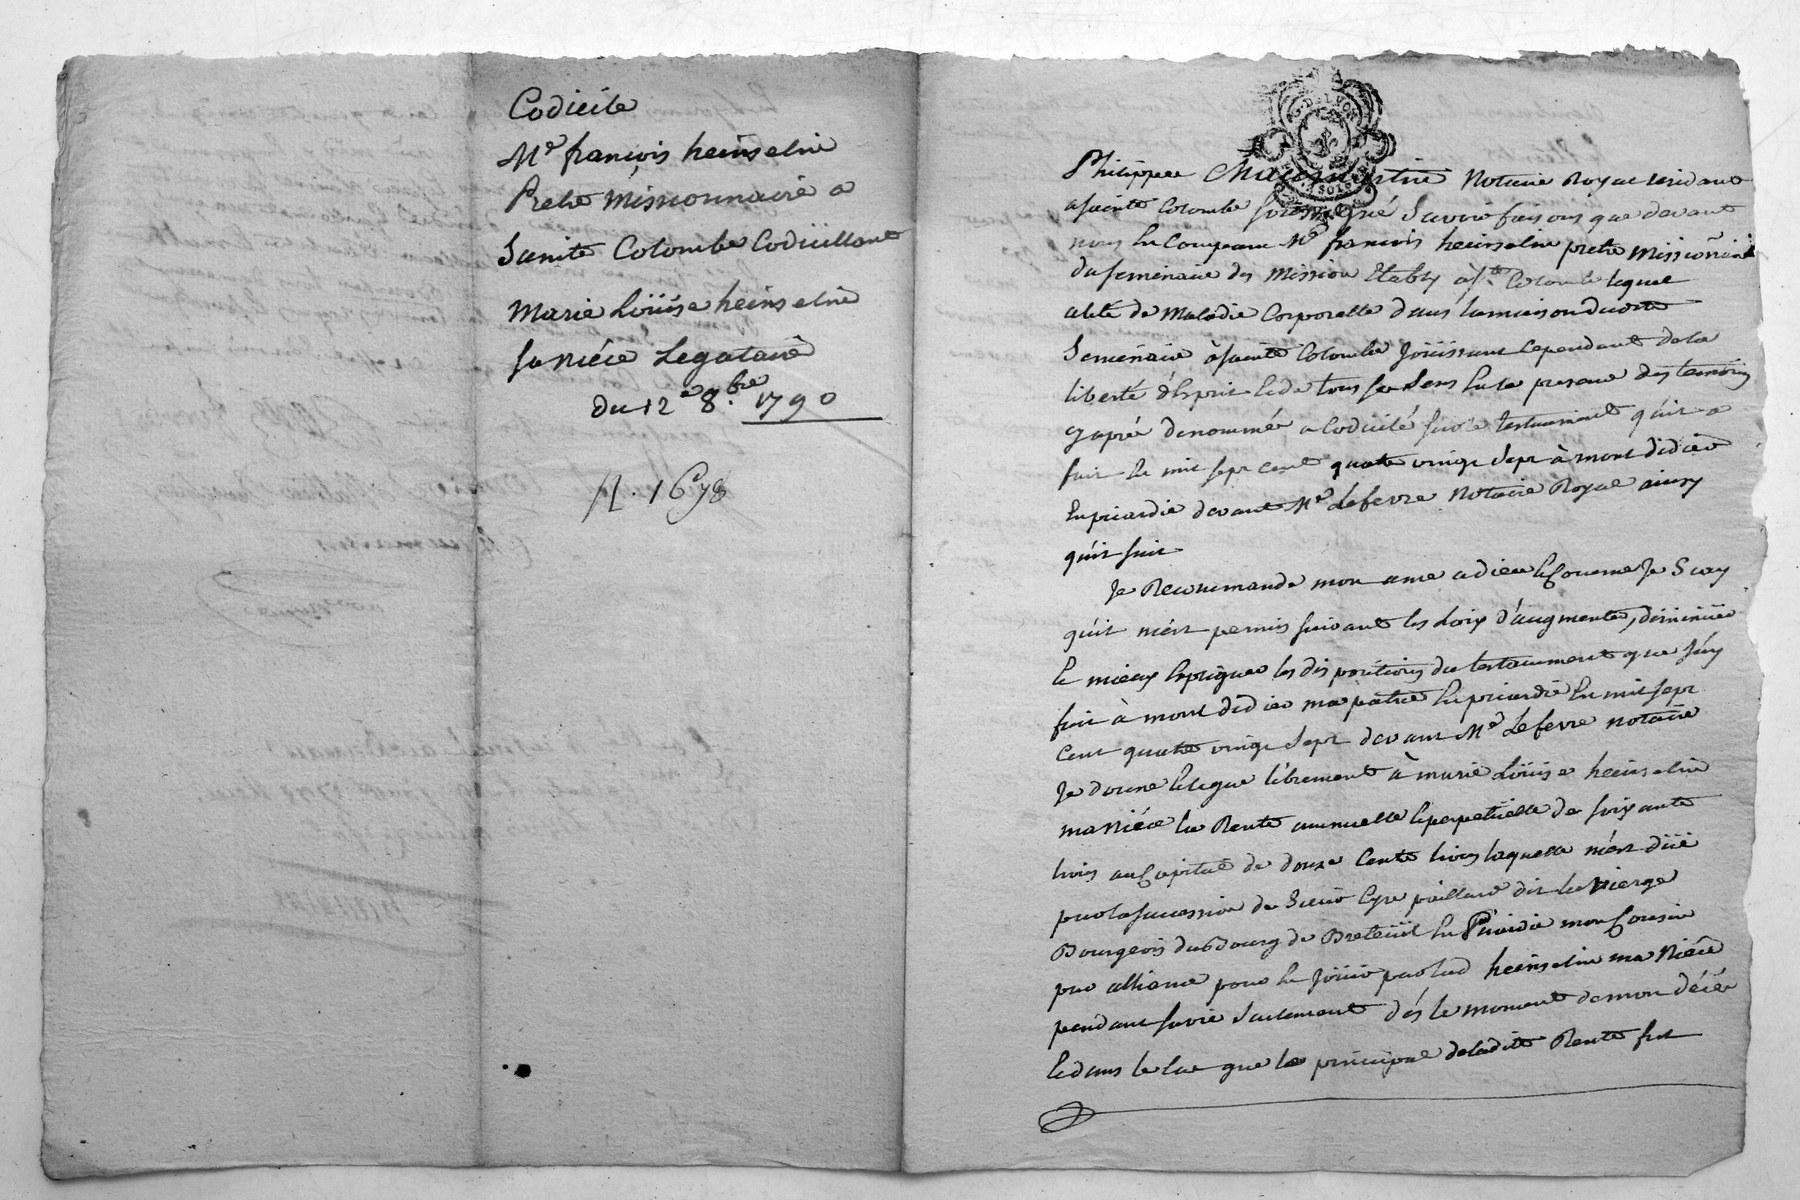 Codicile
Me françois heinselin
Pretre Missionnaire a
Sainte Colombe Codicillant
Marie Loüise heinselin
sa niéce Legataire
du 12e 8.bre 1790
n. 1678
G. D. LYON
Philippe Notaire Royal residant
a sainte Colombe soussigné Savoir faisons que devant
nous En Comparu Me françois heinselin pretre Missionnaire
du seminaire des Mission Etably a Ste Colombe lequel
alité de Maladie Corporelle dans la maison dudit
Seminaire à sainte Colombe Joüissant Cependant de la
liberté d'Esprit Et de tous ses Sens En la presence des temoins
cy aprés denommés a Codicilé sur le testament qu'il a
fait En mil sept cent quatre vingt Sept à mont didier
En picardie devant Me Lefevre Notaire Royal ainsy
qu'il suit
Je Recommande mon ame a dieu Et Comme Je Scay
qu'il m'est permis suivant les Loix d'augmenter, diminüer
le mieux Expliquer les dispositions du testament que J'ay
fait à mont didier ma patrie En picardie En mil sept
Cent quatre vingt Sept devant Me Lefevre notaire
Je donne Et legue librement à marie Loüise heinselin
ma Niéce la Rente annuelle Et perpetüelle de soixante
livres au Capital de douze Cents livres laquelle m'est düe
par la succession de Sieur Cyr paillart dit la vierge
Bourgeois du Bourg de Breteüil En Picardie mon Cousin
par alliance pour En Joüir par lad heinselin ma Niéce
pendant sa vie Seulement dés le moment de mon décés
Et dans le Cas que le principal de ladite Rente fut